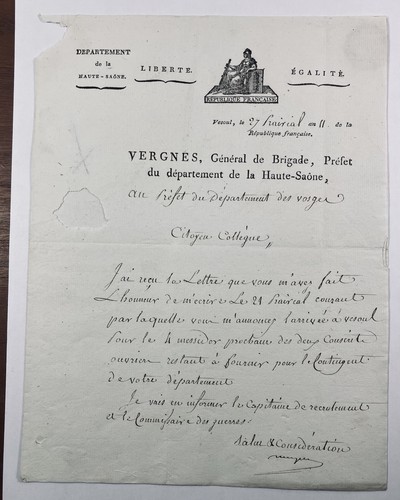 DEPARTEMENT
de la
HAUTE-SAÔNE.
LIBERTÉ.
RÉPUBLIQUE FRANÇAISE
ÉGALITÉ.
Vesoul, le 27 Prairial an 11. de la
République française.
VERGNES, Général de Brigade, Préfet
du département de la Haute-Saône,
au Préfet du Département des vosges
Citoyen Collègue,
J'ai reçu la Lettre que vous m'avez fait
L'honneur de m'écrire Le 21 Prairial courant
par laquelle vous m'annoncez l'arrivée à vesoul
pour le 4 messidor prochain des deux Conscrits
ouvriers restant à fournir pour le Contingent
de votre département
Je vais en informer le Capitaine de recrutement
et le Commissaire des guerres.
Salut & Considération